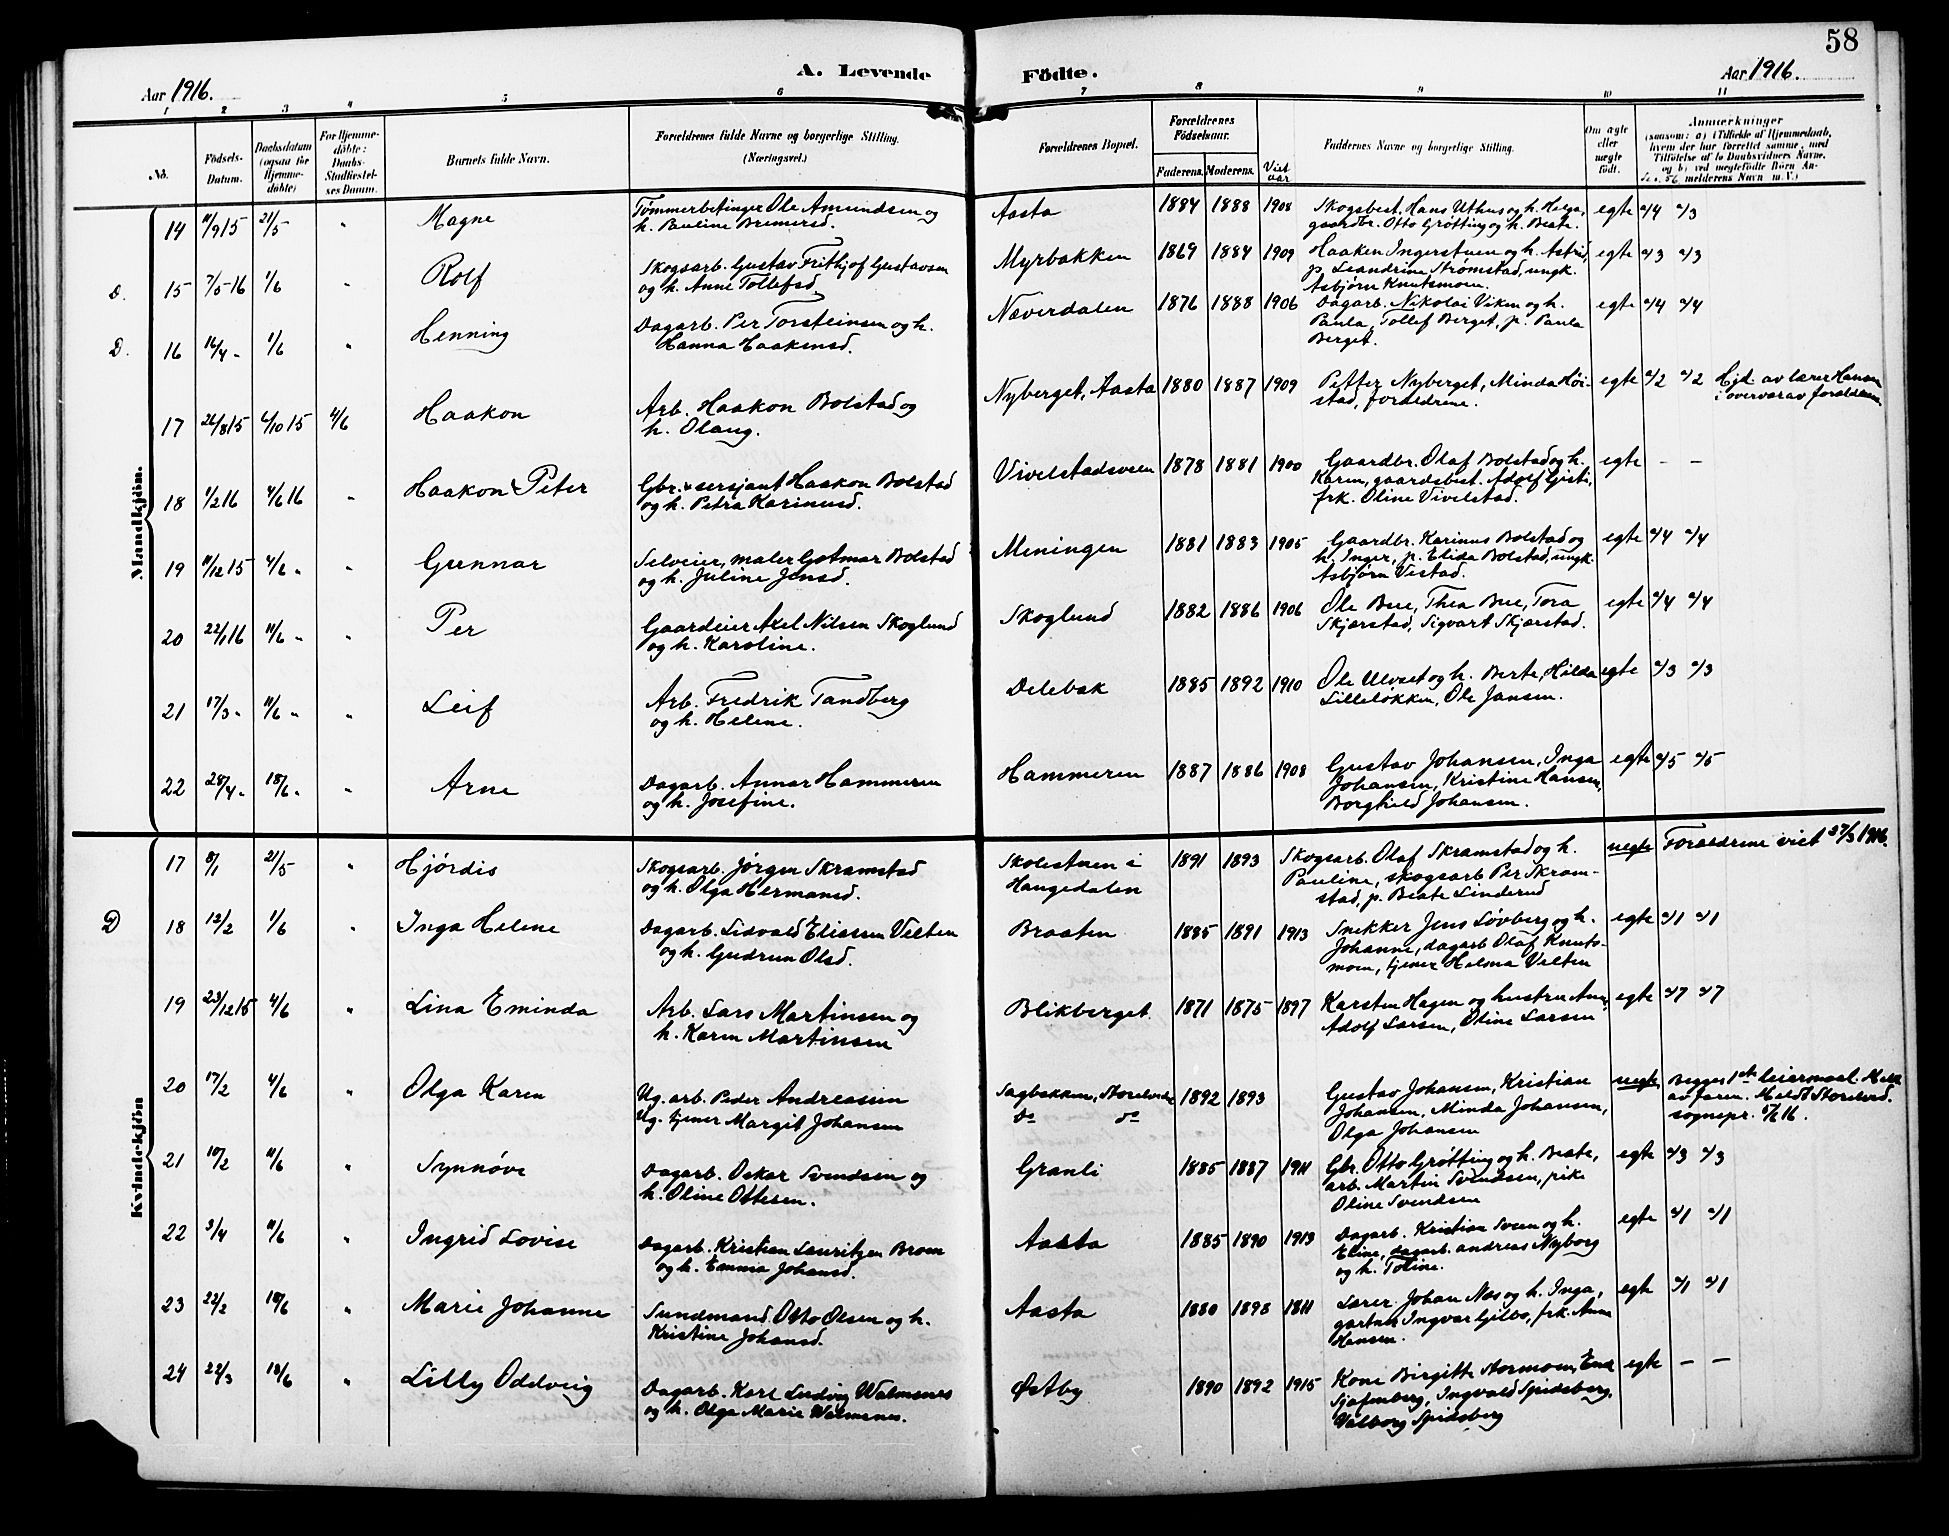 58
A. Levende Födte.
Aar 1916. Aar 1916.
1 2 3 4 5 6 7 8 9 10 11
No. Födsels-Datum. Daabsdatum (ogsaa for Hjemme-döbte) For Hjemme-döbte: Daabs-Stadfæstel-ses Datum. Barnets fulde Navn. Forældrenes fulde Navne og borgerlige Stilling. (Næringsvei.) Forældrenes Bopæl. Forældrenes Födselsaar. Faderens. Moderens. Viet aar Faddernes Navne og borgerlige Stilling. Om ægte eller uægte födt. Anmærkninger (saasom: a) i Tilfælde af Hjemmedaab, hvem der har forrettet samme, med Tilföielse af to Daabsvidners Navne, og b) ved uægtefödte Börn An-melderens Navn m. V.)
Mandkjön.
14 11/9 15 21/5 " Magne Tømmerbetinger Ole Amundsen og
h. Pauline Bremersd. Aasta 1884 1888 1908 Skogsbest. Hans Uthus og h. Helga,
gaardbr. Otto Grøtting og h. Beate. egte a/4 a/3
D. 15 7/5-16 1/6 " Rolf Skogsarb. Gustav Frithjof Gustavsen
og h. Anne Tollefsd. Myrbakken 1869 1884 1909 Haaken Ingerstuen og h. Astrid,
p. Leandrine Strømstad, ungk.
Asbjørn Knutsmoen. egte a/3 a/3
D. 16 16/4 - 1/6 " Henning Dagarb. Per Torsteinsen og h.
Hanna Haakensd. Næverdalen 1876 1888 1906 Dagarb. Nikolai Viken og h.
Paula, Tollef Berget, p. Paula
Berget. egte a/4 a/4
17 26/8 15 4/10 15 4/6 Haakon Arb. Haakon Bolstad og
h. Olaug. Nyberget, Aasta 1880 1887 1909 Petter Nyberget, Minda Høi-
stad, forældrene. egte a/2 a/2 Hjd. av lærer Hansen
i overvær av forældrene.
18 1/2 16 4/6 16 " Haakon Peter Gbr. & sersjant Haakon Bolstad
og h. Petra Karinusd. Vivelstadsveen 1878 1881 1900 Gaardbr. Olaf Bolstad og h.
Karen, gaardsbest. Adolf Gjesti,
frk. Oline Vivelstad. egte - -
19 11/12 15 4/6 - " Gunnar Selveier, maler Gotmar Bolstad
og h. Juline Jensd. Meningen 1881 1883 1905 Gaardbr. Karinus Bolstad og
h. Inger, p. Elida Bolstad, ungk.
Asbjørn Vestad. egte a/4 a/4
20 22/1 16 11/6 - " Per Gaardeier Axel Nilsen Skoglund
og h. Karoline. Skoglund 1882 1886 1906 Ole Bue, Thea Bue, Tora
Skjærstad, Sigvart Skjærstad. egte a/4 a/4
21 17/3 - 11/6 - " Leif Arb. Fredrik Tandberg
og h. Helene. Delebæk 1885 1892 1910 Ole Ulvset og h. Berte, Hilda
Lilleløkken, Ole Jansen. egte a/3 a/3
22 28/4 - 18/6 - " Arne Dagarb. Annar Hammeren
og h. Josefine. Hammeren 1887 1886 1908 Gustav Johansen, Inga
Johansen, Kristine Hansen,
Borghild Johansen. egte a/5 a/5
Kvindekjön
17 8/1 21/5 " Hjórdis Skogsarb. Jørgen Skramstad
og h. Olga Hermansd. Skolestuen i
Haugedalen 1891 1893 Skogsarb. Olaf Skramstad og h.
Pauline, skogsarb Per Skram-
stad, p. Beate Linderud uegte Forældrene viet 27/3 1916.
D 18 12/2 1/6 " Inga Helene Dagarb. Lidvald Eliassen Velten
og h. Gudrun Olsd. Braaten 1885 1891 1913 Snekker Jens Løvberg og h.
Johanne, dagarb Olaf Knuts-
moen, tjener Helma Velten egte a/1 a/1
19 23/12 15 4/6 " Lina Eminda Arb. Lars Martinsen og
h. Karen Martinsen Blikberget. 1871 1875 1897 Karsten Hagen og hustru Anne,
Adolf Larsen, Oline Larsen egte a/7 a/7
20 17/2 4/6 " Olga Karen Ug. arb. Peder Andreassen
Ug. tjener Margit Johansen Sagbakken, Storelvdal
do do 1892 1893 Gustav Johansen, Kristian
Johansen, Minda Johansen,
Olga Johansen uegte Begges 1ste leiermaal. Meldt
av faren. Meldt Storelvd.
sognepr. 5/6 16.
21 10/2 11/6 " Synnóve Dagarb. Oskar Svendsen og
h. Oline Ottesen. Granli 1885 1887 1911 Gbr. Otto Grøtting og h. Beate,
arb. Martin Svendsen, pike
Oline Svendsen egte a/3 a/3
22 3/4 11/6 " Ingrid Lovise Dagarb. Kristian Lauritzen Brom
og h. Emma Johansd. Aasta 1885 1890 1913 Dagarb. Kristian Sveen og h.
Eline, dagarb. andreas Nyborg
og h. Toline. egte a/1 a/1
23 22/2 18/6 " Marie Johanne Sundmand Otto Olsen og h.
Kristine Johansd. Aasta 1880 1898 1811 Lærer Johan Næs og h. Inga,
gartner Ingvar Gilbo, frk. Anne
Hansen. egte a/1 a/1
24 22/3 18/6 " Lilly Oddveig Dagarb. Karl Ludvig Walmsnes
og h. Olga Marie Walmsnes. Østby 1890 1892 1915 Kone Birgitte Stormoen, Ena
Sjøfenberg, Ingvald Spidsberg,
Valborg Spidsberg egte - -